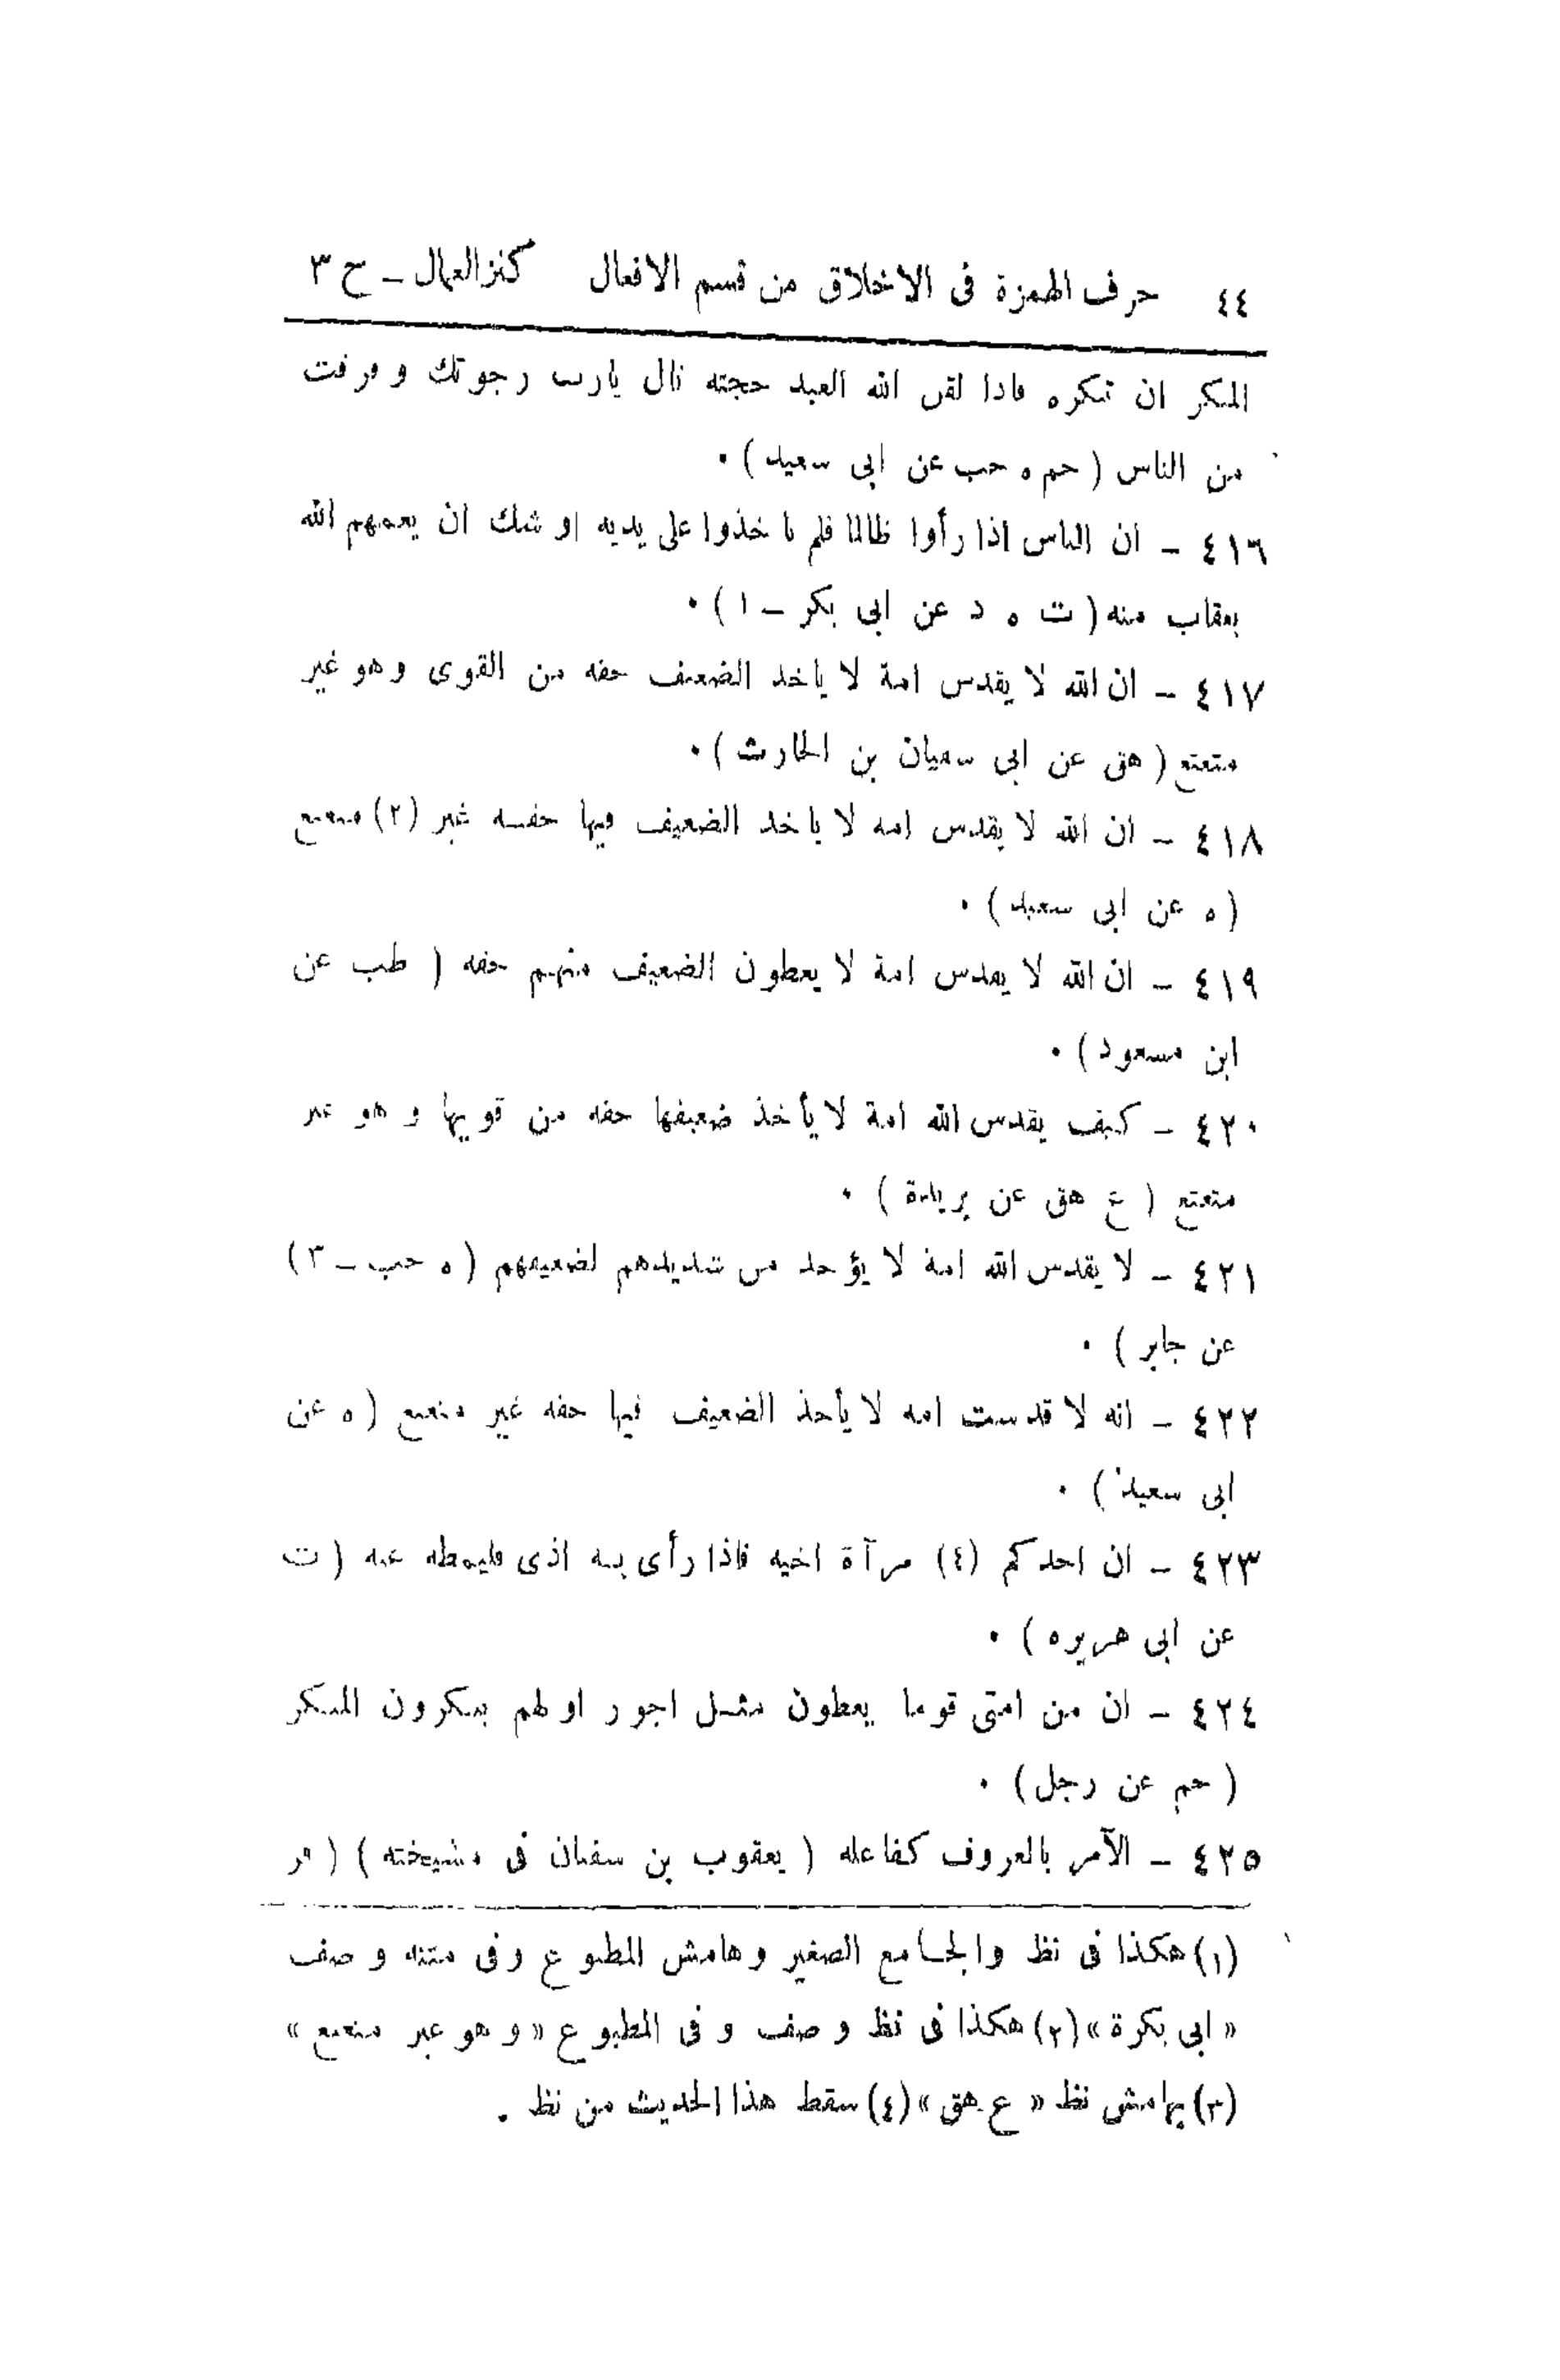 ٤٤ حرف الهمزة فى الاخلاق من قسم الافعال كنز العمال ـ ج ٣
المنكر ان تنكره فاذا لقن الله العبد حجته قال يارب رجوتك و فرقت
من الناس ( حم ه حب عن ابى سعيد ) ٠
٤١٦ ـ ان الناس اذا رأوا ظالما فلم ياخذوا على يديه او شك ان يعمهم الله
بعقاب منه ( ت ه د عن ابى بكر ـ ١ ) ٠
٤١٧ ـ ان الله لا يقدس امة لا ياخذ الضعيف حقه من القوى وهو غير
متعتع ( هق عن ابى سفيان بن الحارث ) ٠
٤١٨ ـ ان الله لا يقدس امه لا ياخذ الضعيف فيها حقه غير (٢) متعتع
( ه عن ابى سعيد ) ٠
٤١٩ ـ ان الله لا يقدس امة لا يعطون الضعيف منهم حقه ( طب عن
ابن مسعود ) ٠
٤٢٠ ـ كيف يقدس الله امة لا يأخذ ضعيفها حقه من قويها و هو غير
متعتع ( ع هق عن بريدة ) ٠
٤٢١ ـ لا يقدس الله امة لا يؤخذ من شديدهم لضعيفهم ( ه حب ـ ٣ )
عن جابر ) ٠
٤٢٢ ـ انه لا قدست امه لا يأخذ الضعيف فيها حقه غير متعتع ( ه عن
ابى سعيد ) ٠
٤٢٣ ـ ان احدكم (٤) مرآة اخيه فاذا رأى به اذى فليمطه عنه ( ت
عن ابى هريره ) ٠
٤٢٤ ـ ان من امتى قوما يعطون مثل اجور اولهم ينكرون المنكر
( حم عن رجل ) ٠
٤٢٥ ـ الآمر بالمعروف كفاعله ( يعقوب بن سفيان فى مشيخته ) ( فر
(١) هكذا فى نظ والجامع الصغير وهامش المطبوع وفى متنه و صف
« ابى بكرة » (٢) هكذا فى نظ و صف و فى المطبوع « و هو غير متعتع »
(٣) بهامش نظ « ع هق » (٤) سقط هذا الحديث من نظ .